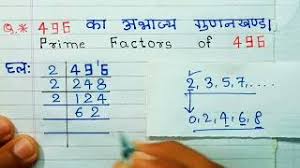 Q.* 496 का अभाज्य गुणनखण्ड।
Prime Factors of 496
हल: 2 | 496
2 | 248
2 | 124
62
2, 3, 5, 7, ....
0, 2, 4, 6, 8